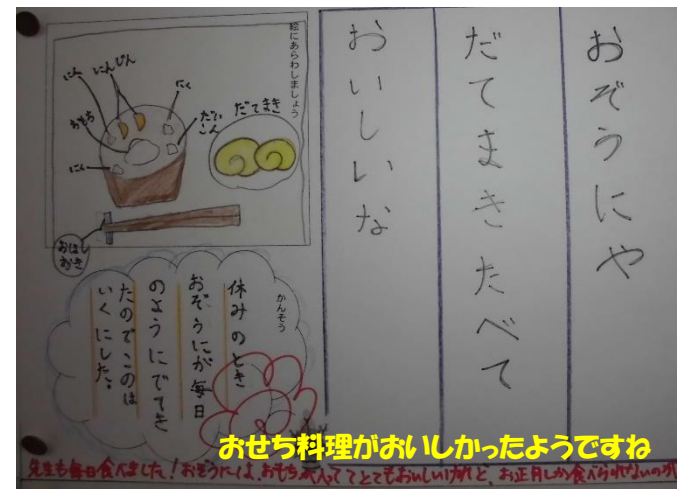 おぞうにや
だてまきたべて
おいしいな
絵にあらわしましょう
にんじん
にく
だいこん
おもち
にく
だてまき
おはしおき
かんそう
休みのとき
おぞうにが毎日
のようにでてき
たのでこのは
いくにした。
おせち料理がおいしかったようですね
先生も毎日食べました!おぞうには、おもちが入っててとてもおいしいけれど、お正月しか食べられないのが